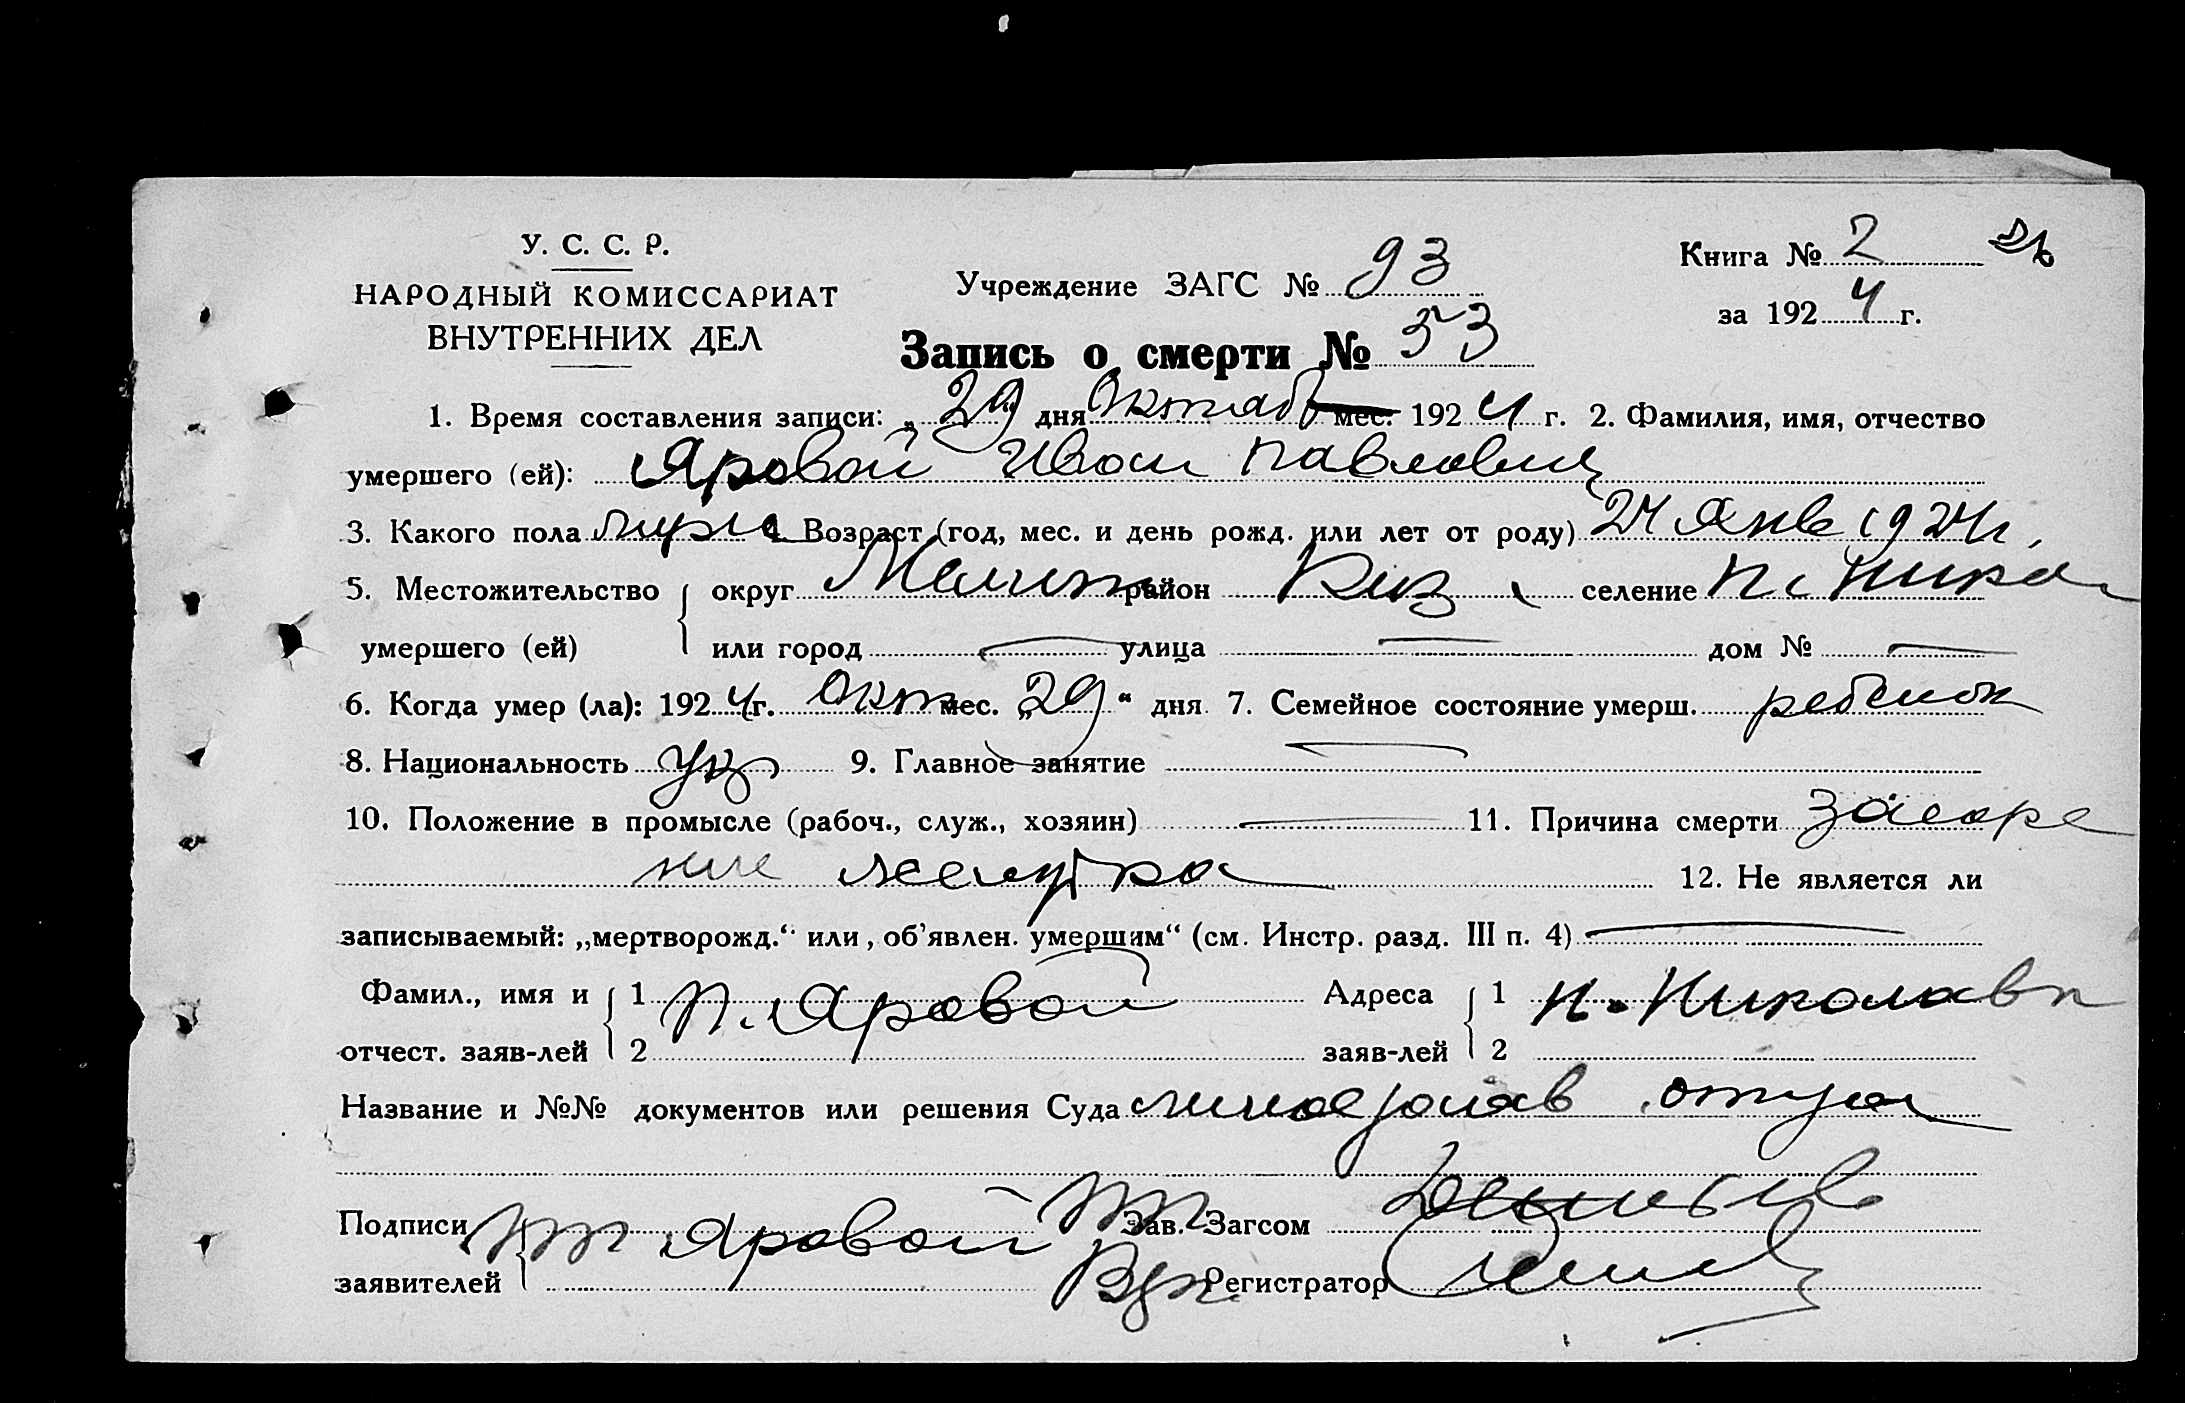 У. С. С. Р.
НАРОДНЫЙ КОМИССАРИАТ
ВНУТРЕННИХ ДЕЛ
Учреждение ЗАГС № 93
Книга № 2
за 1924 г.
Запись о смерти № 53
1. Время составления записи: „29" дня Октяб мес. 1924 г. 2. Фамилия, имя, отчество
умершего (ей): Яровой Иван Павлович
3. Какого пола муж 4. Возраст (год, мес. и день рожд. или лет от роду) 24 Янв 1924 г.
5. Местожительство округ район селение
умершего (ей) или город — улица — дом № —
6. Когда умер (ла): 1924 г. Окт мес. „29“ дня 7. Семейное состояние умерш. ребенок
8. Национальность укр 9. Главное занятие —
10. Положение в промысле (рабоч., служ., хозяин) — 11. Причина смерти засоре
ние желудка 12. Не является ли
записываемый: „мертворожд.“ или „об'явлен. умершим“ (см. Инстр. разд. III п. 4) —
Фамил., имя и 1 П. Яровой Адреса 1
отчест. заяв-лей 2 заяв-лей 2
Название и №№ документов или решения Суда отца
Подписи Яровой Зав. Загсом
заявителей Регистратор